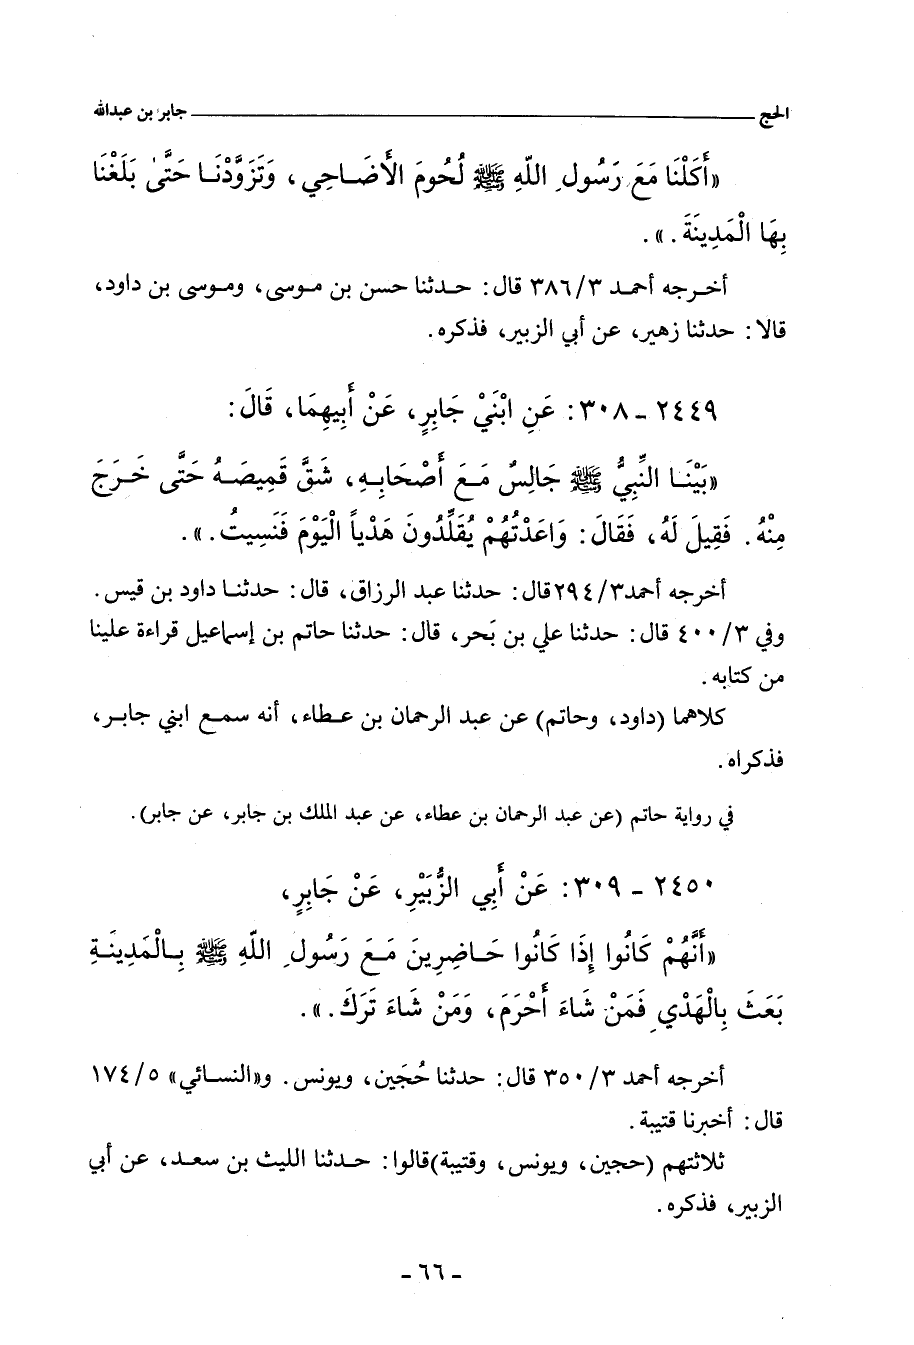 الحج جابر بن عبدالله
«أَكَلْنَا مَعَ رَسُولِ اللّهِ ﷺ لُحُومَ الأَضَاحِي، وَتَزَوَّدْنَا حَتَّىٰ بَلَغْنَا
بِهَا الْمَدِينَةَ.».
أخرجه أحمد ٣/٣٨٦ قال: حدثنا حسن بن موسى، وموسى بن داود،
قالا: حدثنا زهير، عن أبي الزبير، فذكره.
٢٤٤٩ - ٣٠٨: عَنِ ابْنَيْ جَابِرٍ، عَنْ أَبِيهِمَا، قَالَ:
«بَيْنَا النَّبِيُّ ﷺ جَالِسٌ مَعَ أَصْحَابِهِ، شَقَّ قَمِيصَهُ حَتَّى خَرَجَ
مِنْهُ. فَقِيلَ لَهُ، فَقَالَ: وَاعَدْتُهُمْ يُقَلِّدُونَ هَدْياً الْيَوْمَ فَنَسِيتُ.».
أخرجه أحمد٣/٢٩٤قال: حدثنا عبد الرزاق، قال: حدثنا داود بن قيس.
وفي ٣/٤٠٠ قال: حدثنا علي بن بَحر، قال: حدثنا حاتم بن إسماعيل قراءة علينا
من كتابه.
كلاهما (داود، وحاتم) عن عبد الرحمان بن عطاء، أنه سمع ابني جابر،
فذكراه.
في رواية حاتم (عن عبد الرحمان بن عطاء، عن عبد الملك بن جابر، عن جابر).
٢٤٥٠ - ٣٠٩: عَنْ أَبِي الزُّبَيْرِ، عَنْ جَابِرٍ،
«أَنَّهُمْ كَانُوا إِذَا كَانُوا حَاضِرِينَ مَعَ رَسُولِ اللّهِ ﷺ بِالْمَدِينَةِ
بَعَثَ بِالْهَدْيِ فَمَنْ شَاءَ أَحْرَمَ، وَمَنْ شَاءَ تَرَكَ.».
أخرجه أحمد ٣/٣٥٠ قال: حدثنا حُجَين، ويونس. و«النسائي» ٥/١٧٤
قال: أخبرنا قتيبة.
ثلاثتهم (حجين، ويونس، وقتيبة)قالوا: حدثنا الليث بن سعد، عن أبي
الزبير، فذكره.
- ٦٦ -